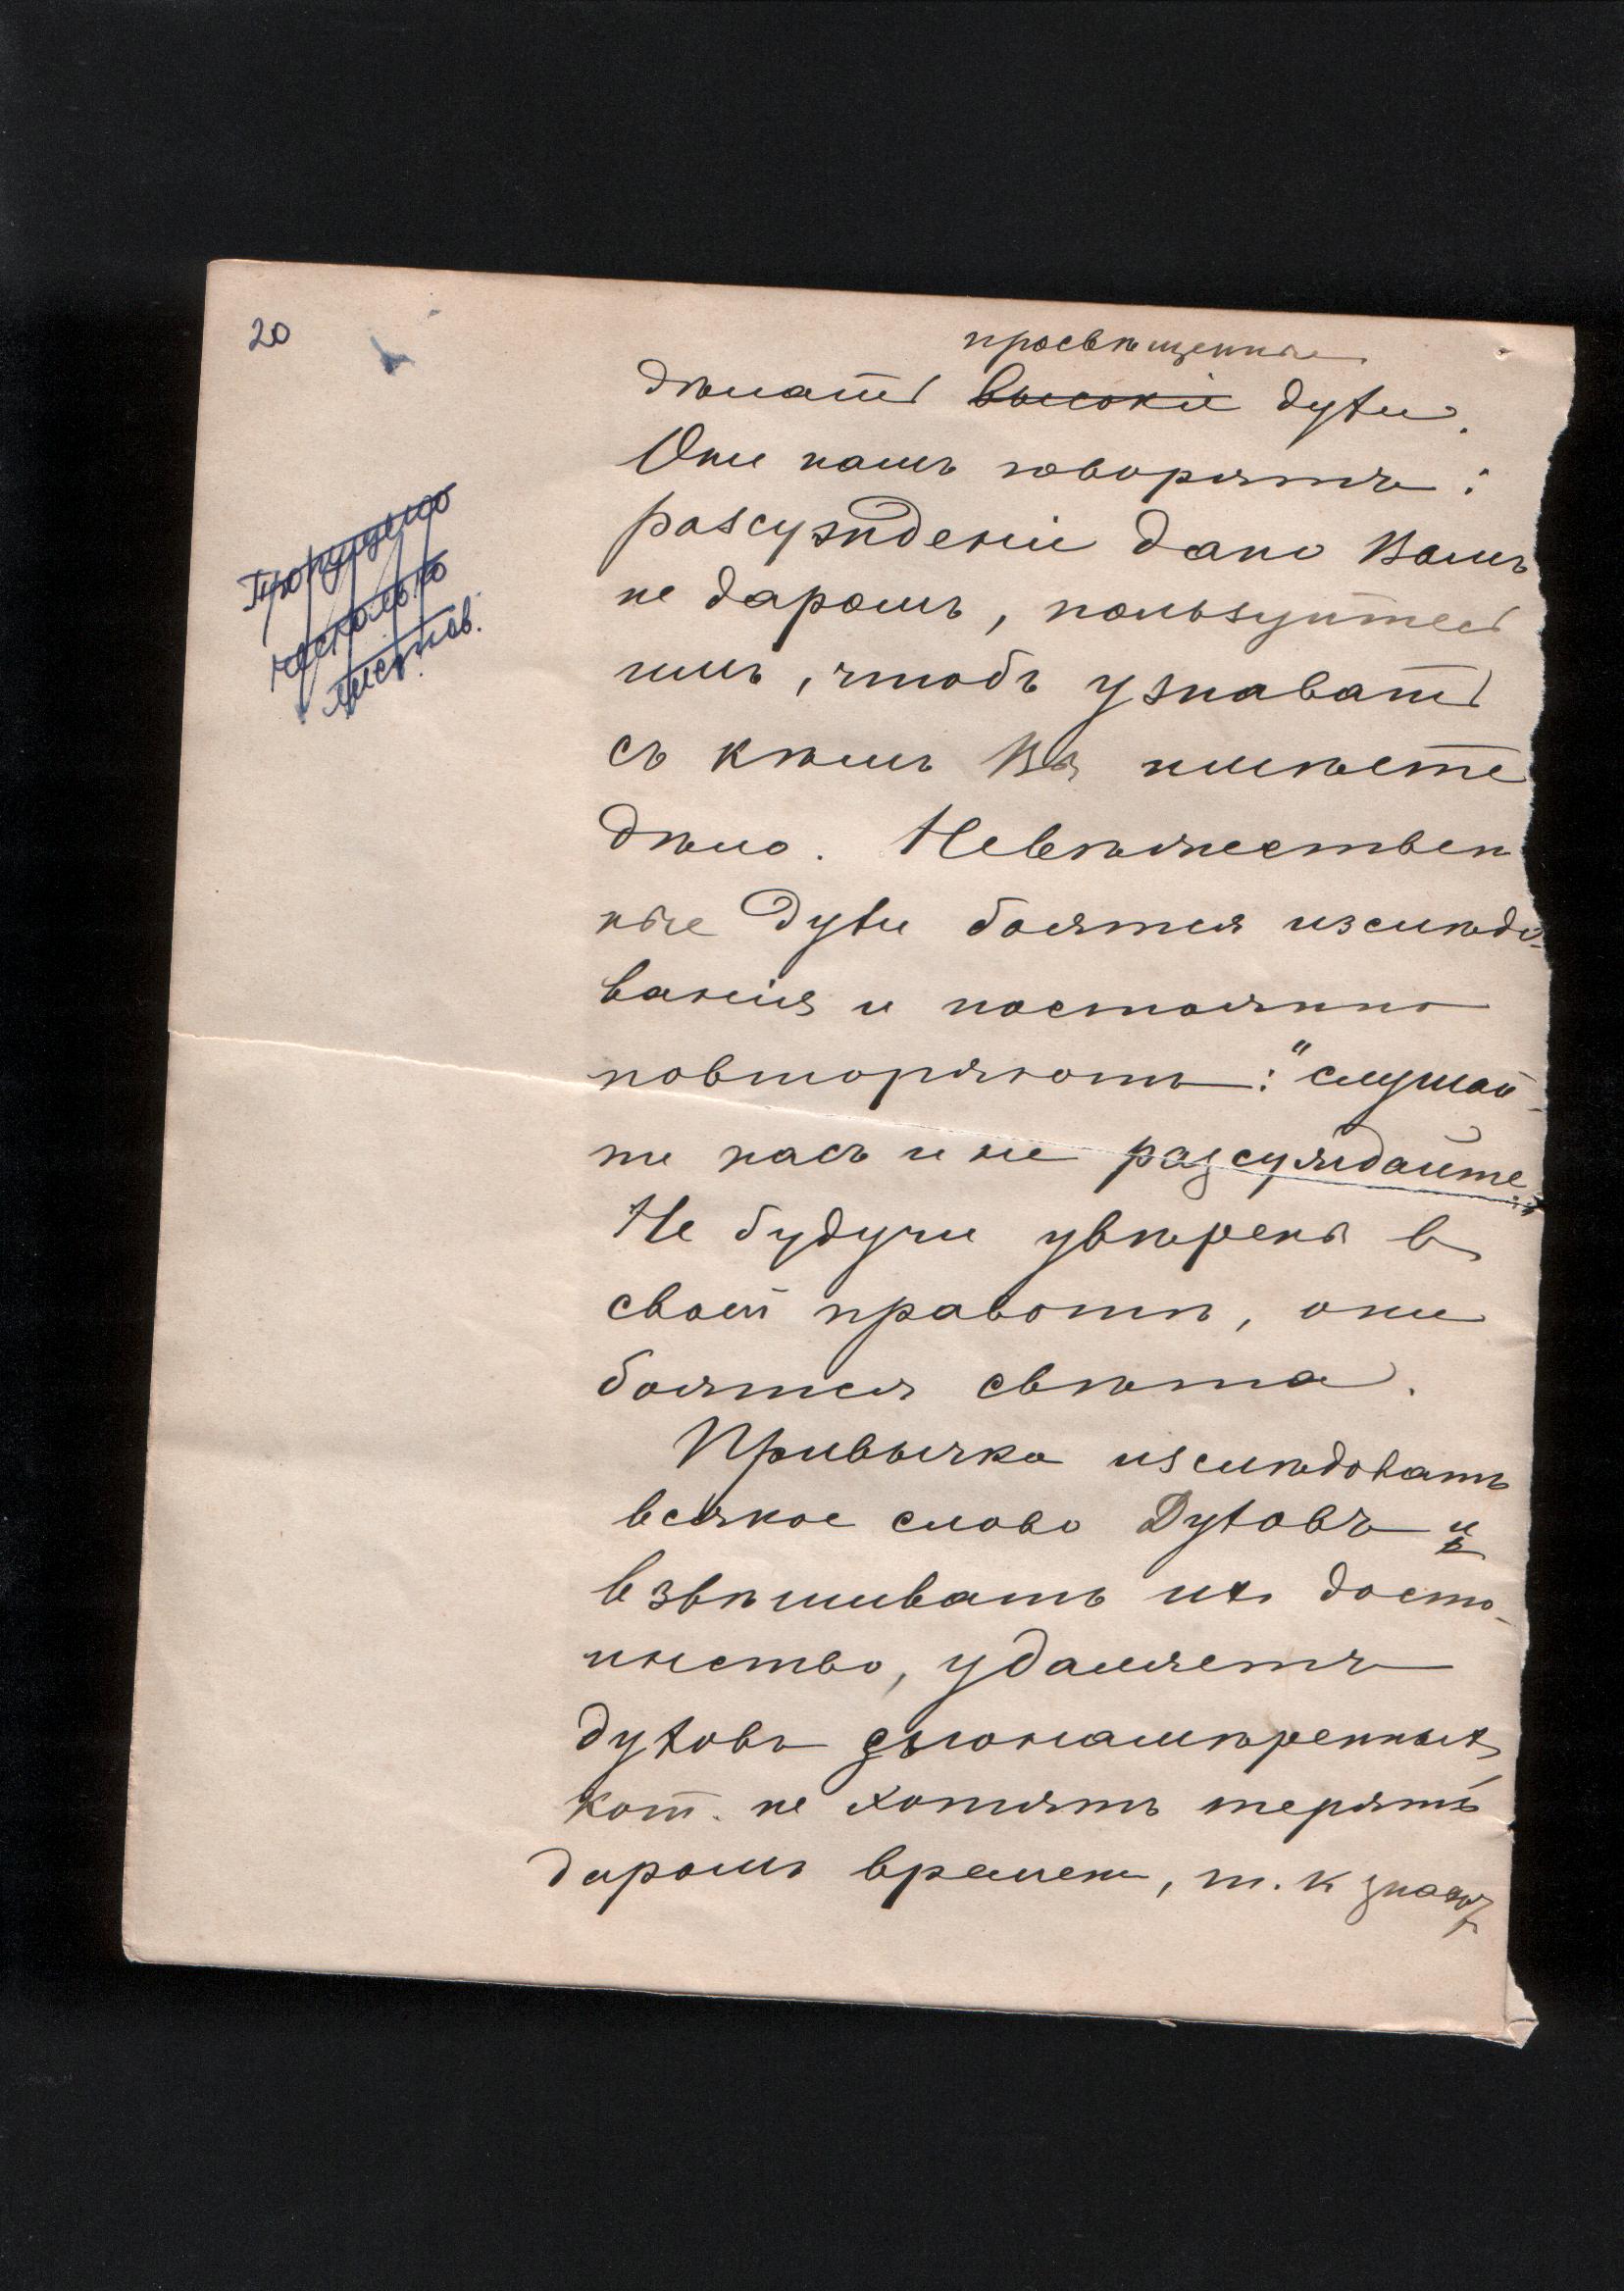 20
просвѣщенные
дѣлать высокіе духи.
Они намъ говорятъ:
разсужденіе дано Вамъ
не даромъ, пользуйтесь
имъ, чтобъ узнавать
съ кѣмъ Вы имѣете
дѣло. Невѣжествен
ные Духи боятся изслѣдо-
ванія и постоянно
повторяютъ: "слушай-
те насъ и не разсуждайте."
Не будучи увѣрены в
своей правотѣ, они
боятся свѣта.
Привычка изслѣдовать
всякое слово Духовъ и
взвѣшивать их досто-
инство, удаляетъ
духовъ злонамѣренных,
кот. не хотятъ терять
даромъ времени, т. к знают
Пропущено
несколько
листов.